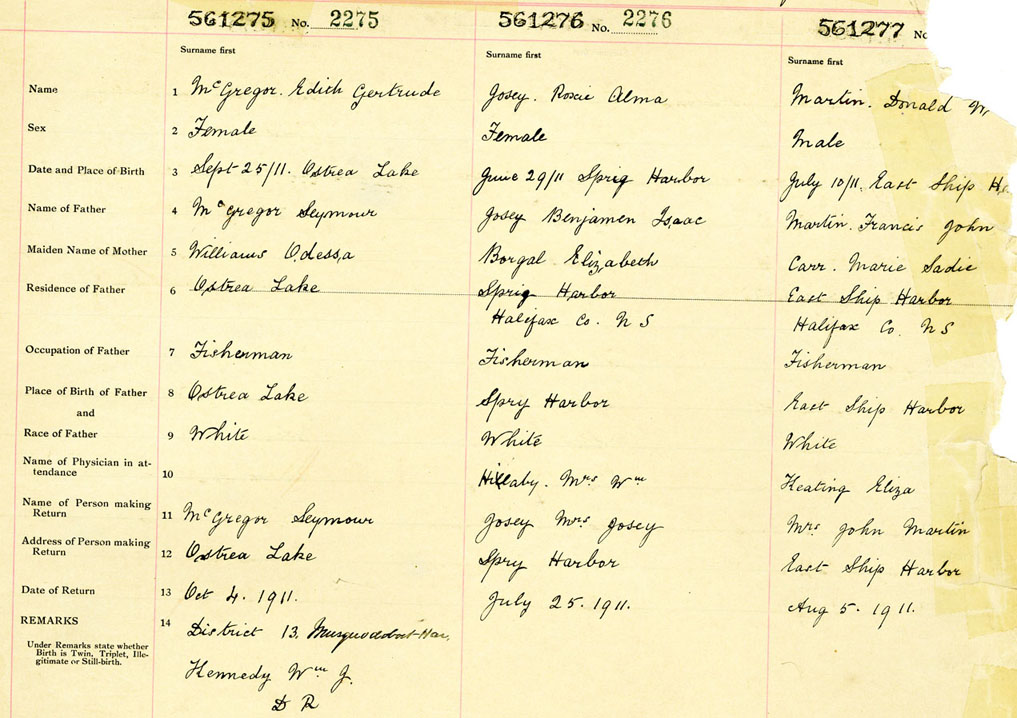 561275 No. 2275 561276 No. 2276 561277 No
Surname first Surname first Surname first
Name 1 McGregor. Edith Gertrude Josey. Roxie Alma Martin. Donald W.
Sex 2 Female Female Male
Date and Place of Birth 3 Sept 25/11. Ostrea Lake June 29/11 Sprig Harbor July 10/11. East Ship H
Name of Father 4 McGregor Seymour Josey Benjamen Isaac Martin. Francis John
Maiden Name of Mother 5 Williams Odessa Borgal Elizabeth Carr. Marie Sadie
Residence of Father 6 Ostrea Lake Sprig Harbor East Ship Harbor
Halifax Co. N S Halifax Co. N S
Occupation of Father 7 Fisherman Fisherman Fisherman
Place of Birth of Father 8 Ostrea Lake Spry Harbor East Ship Harbor
and
Race of Father 9 White White White
Name of Physician in at-
tendance 10 Hillaby. Mrs Wm Keating Eliza
Name of Person making
Return 11 McGregor Seymour Josey Mrs Josey Mrs John Martin
Address of Person making
Return 12 Ostrea Lake Spry Harbor East Ship Harbor
Date of Return 13 Oct 4. 1911. July 25. 1911. Aug 5. 1911.
REMARKS 14 District 13. Musquodoboit Har.
Under Remarks state whether
Birth is Twin, Triplet, Ille-
gitimate or Still-birth.
Kennedy Wm J.
D R